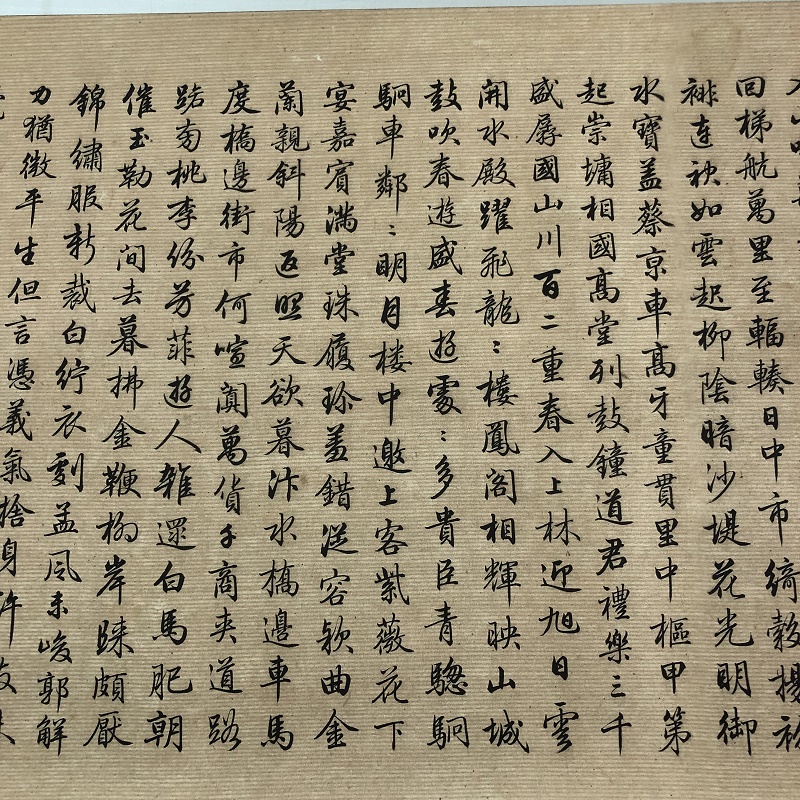 回梯航萬里至輻輳日中市綺縠揚
裶連袂如雲起柳陰暗沙堤花光明御
水寶蓋蔡京車高牙童貫里中樞甲第
起崇墉相國高堂列鼓鐘道君禮樂三千
盛孱國山川百二重春入上林迎旭日雲
開水殿躍飛龍:樓鳳閣相輝映山城
鼓吹春遊盛春遊處:多貴臣青驄駉
駉車鄰:明月樓中邀上客紫薇花下
宴嘉賓滿堂珠履珍羞錯從容款曲金
蘭親斜陽返照天欲暮汴水橋邊車馬
度橋邊街市何喧闐萬貨千商夾道路
踏南桃李份芳菲遊人雜還白馬肥朝
催玉勒花間去暮拂金鞭柳岸頗厭
錦繡服新裁白紵衣劇孟風未峻郭解
力猶微平生但言憑義氣捨身許